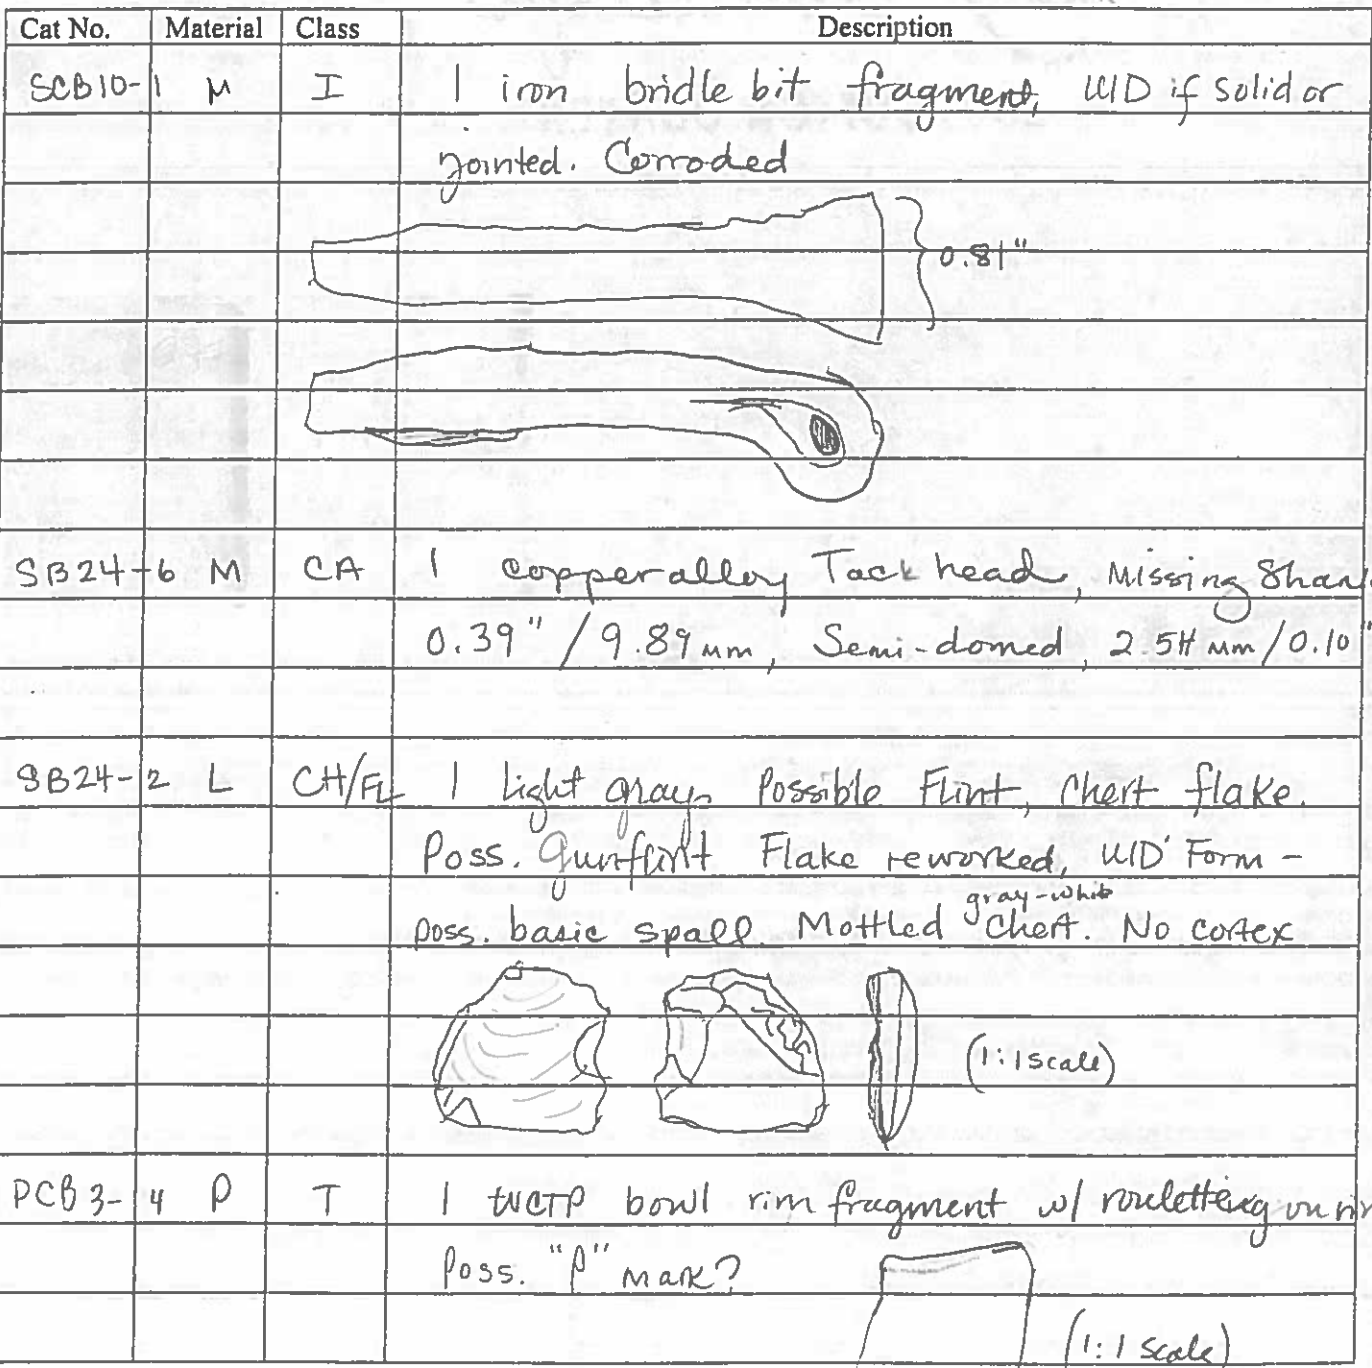 Cat No. Material Class Description
SCB10-1 M I 1 iron bridle bit fragment, UID if solid or
jointed. Corroded
0.81"
SB24-6 M CA 1 copper alloy Tack head, Missing Shan
0.39" / 9.89 mm, Semi-domed, 2.54 mm / 0.10"
SB24-2 L CH/FL 1 light gray Possible Flint, Chert flake.
Poss. Gunflint Flake reworked, UID Form -
gray-white
poss. basic spall. Mottled Chert. No cortex
(1:1 scale)
PCB3-4 P T 1 WCTP bowl rim fragment w/ rouletting on rim
Poss. "P" mark?
(1:1 scale)